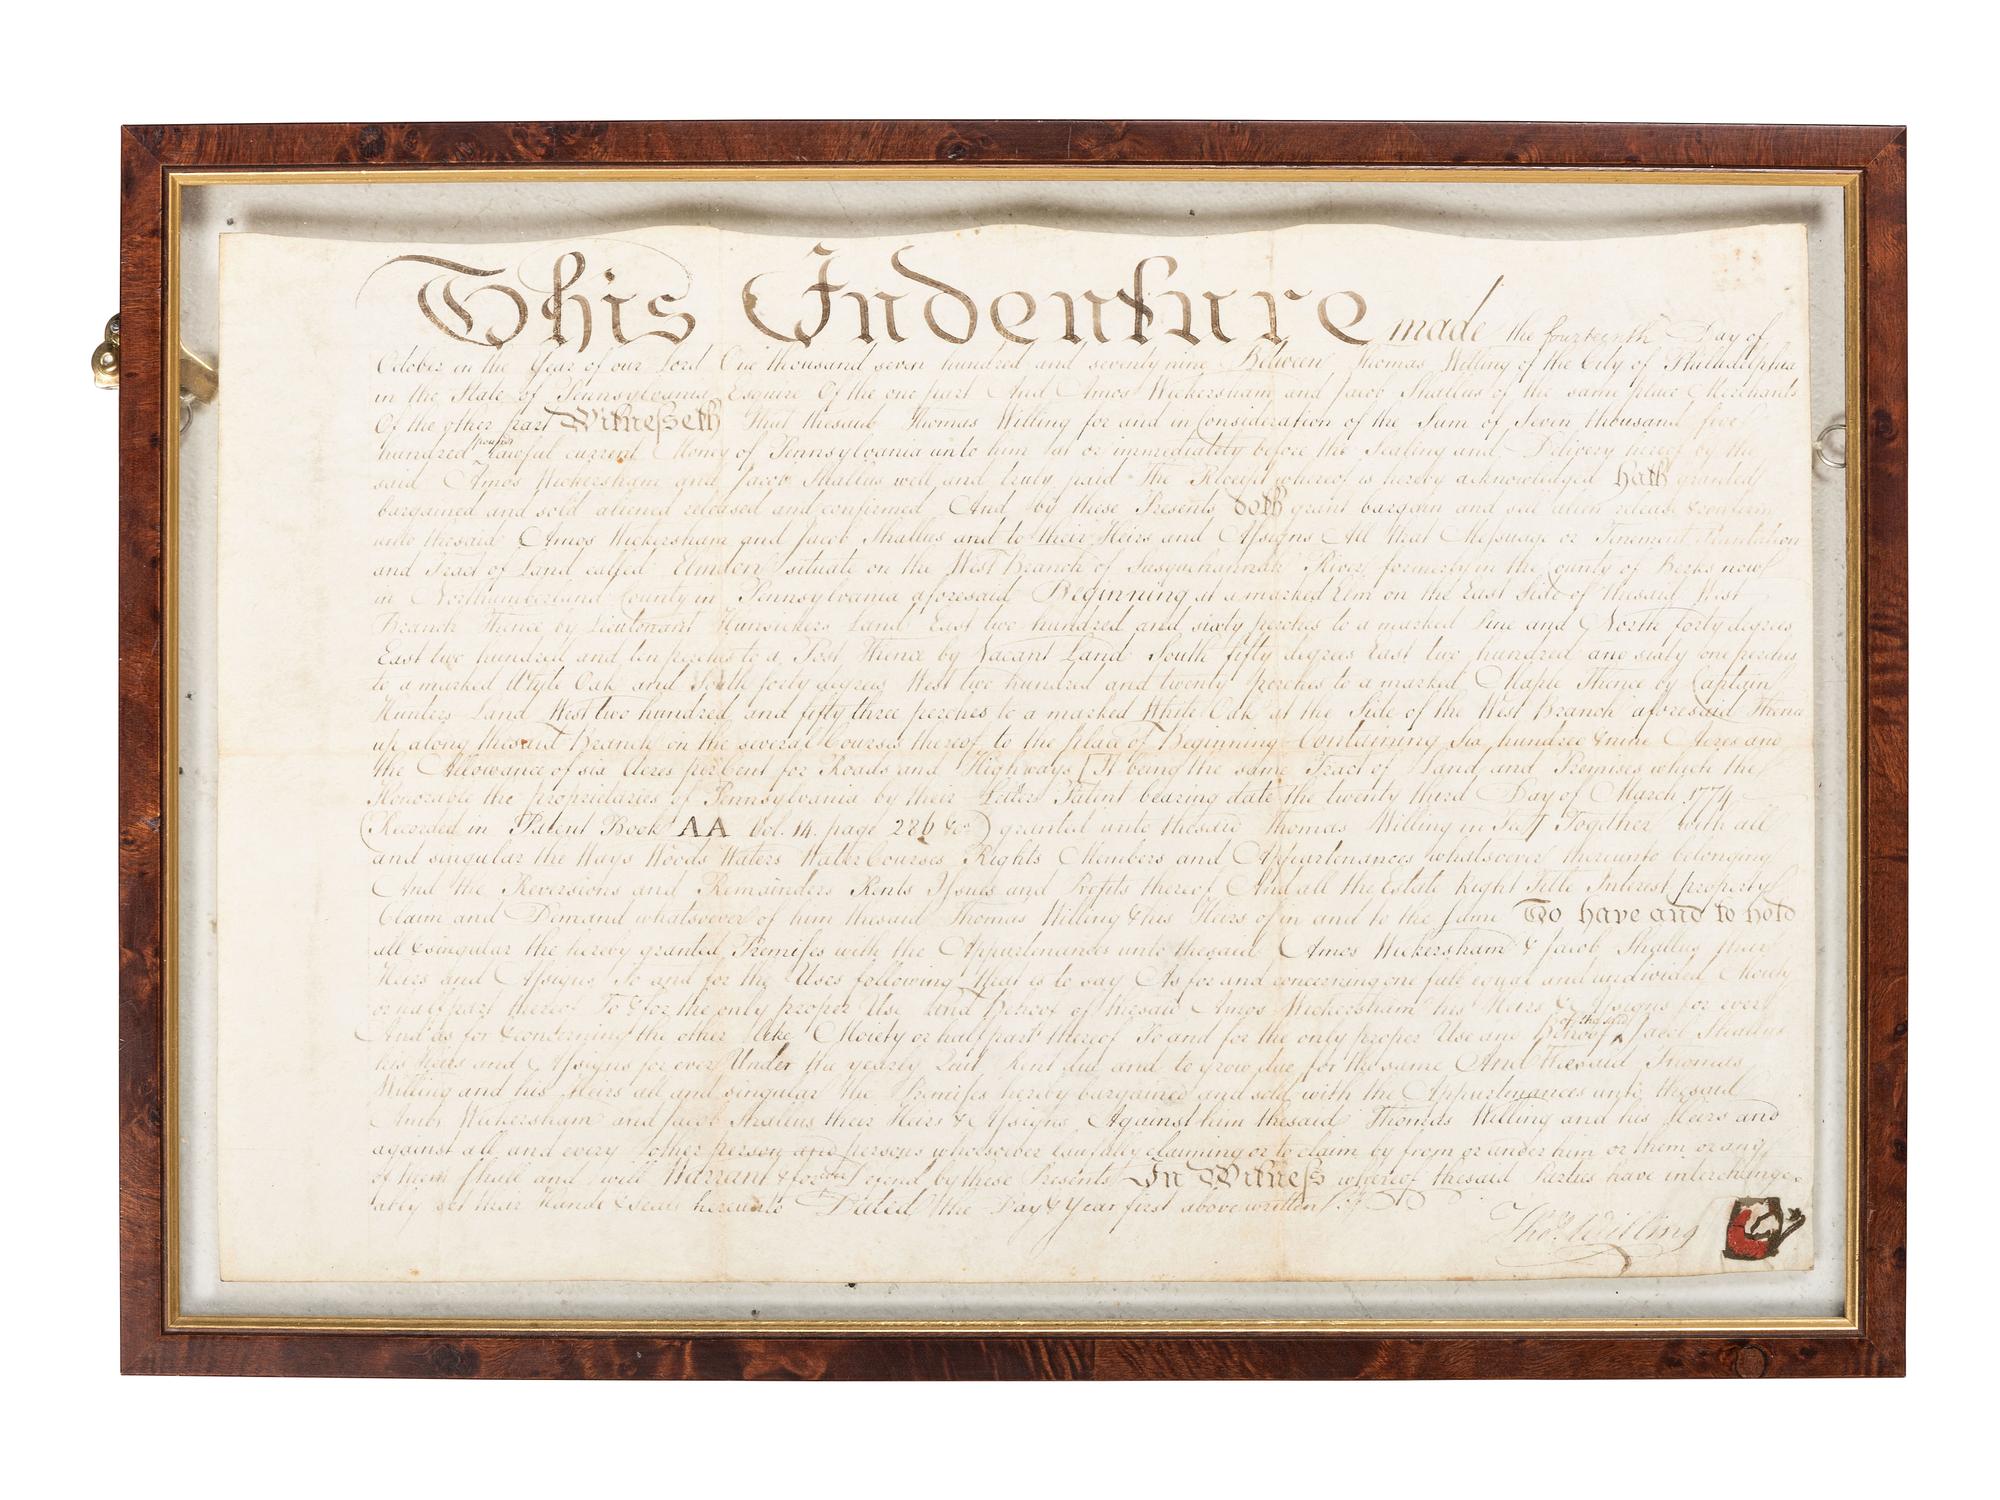 This Indenture made the fourteenth Day of
October in the Year of our Lord One thousand seven hundred and seventy nine Between Thomas Willing of the City of Philadelphia
in the State of Pennsylvania Esquire Of the one part And Amos Wickersham and Jacob Shallus of the same place Merchants
Of the other part Witnesseth That thesaid Thomas Willing for and in Consideration of the Sum of Seven thousand five
hundred pounds lawful current Money of Pennsylvania unto him at or immediately before the Sealing and Delivery hereof by the
said Amos Wickersham and Jacob Shallus well and truly paid The Receipt whereof is hereby acknowledged hath granted
bargained and sold aliened released and confirmed And by these Presents doth grant bargain and sell alien release & confirm
unto thesaid Amos Wickersham and Jacob Shallus and to their Heirs and Assigns All that Messuage or Tenement Plantation
and Tract of Land called Elmdon situate on the West Branch of Susquehannah River formerly in the County of Berks now
in Northumberland County in Pennsylvania aforesaid Beginning at a marked Elm on the East Side of thesaid West
Branch Thence by Lieutenant Hunsickers Land East two hundred and sixty perches to a marked Pine and North forty degrees
East two hundred and ten perches to a Post Thence by Vacant Land South fifty degrees East two hundred and sixty one perches
to a marked Whyte Oak and South forty degrees West two hundred and twenty perches to a marked Maple Thence by Captain
Hunters Land West two hundred and fifty three perches to a marked White Oak at the Side of the West Branch aforesaid Thence
up along thesaid Branch in the several Courses thereof to the place of Beginning Containing Six hundred & nine Acres and
the Allowance of six Acres per Cent for Roads and Highways [It being the same Tract of Land and Premises which the
Honorable the proprietaries of Pennsylvania by their Letters Patent bearing date the twenty third Day of March 1774
(Recorded in Patent Book AA Vol. 14. page 286 &ca) granted unto thesaid Thomas Willing in Fee] Together with all
and singular the Ways Woods Waters Water Courses Rights Members and Appurtenances whatsoever thereunto belonging
And the Reversions and Remainders Rents Issues and Profits thereof And all the Estate Right Title Interest property
Claim and Demand whatsoever of him thesaid Thomas Willing & his Heirs of in and to the same To have and to hold
all & singular the hereby granted Premises with the Appurtenances unto thesaid Amos Wickersham & Jacob Shallus their
Heirs and Assigns To and for the Uses following that is to say As for and concerning one full equal and undivided Moiety
or half part thereof To & for the only proper Use and Behoof of thesaid Amos Wickersham his Heirs & Assigns for ever
And as for & concerning the other like Moiety or half part thereof To and for the only proper Use and Behoof of the said Jacob Shallus
his Heirs and Assigns for ever Under the yearly Quit Rent due and to grow due for thesame And thesaid Thomas
Willing and his Heirs all and singular the Premises hereby bargained and sold with the Appurtenances unto thesaid
Amos Wickersham and Jacob Shallus their Heirs & Assigns Against him thesaid Thomas Willing and his Heirs and
against all and every other person and persons whosoever lawfully claiming or to claim by from or under him or them or any
of them shall and will Warrant & forever Defend by these Presents In Witness whereof thesaid Parties have interchange-
ably set their Hands & Seals hereunto Dated the Day & Year first above written
Thos. Willing